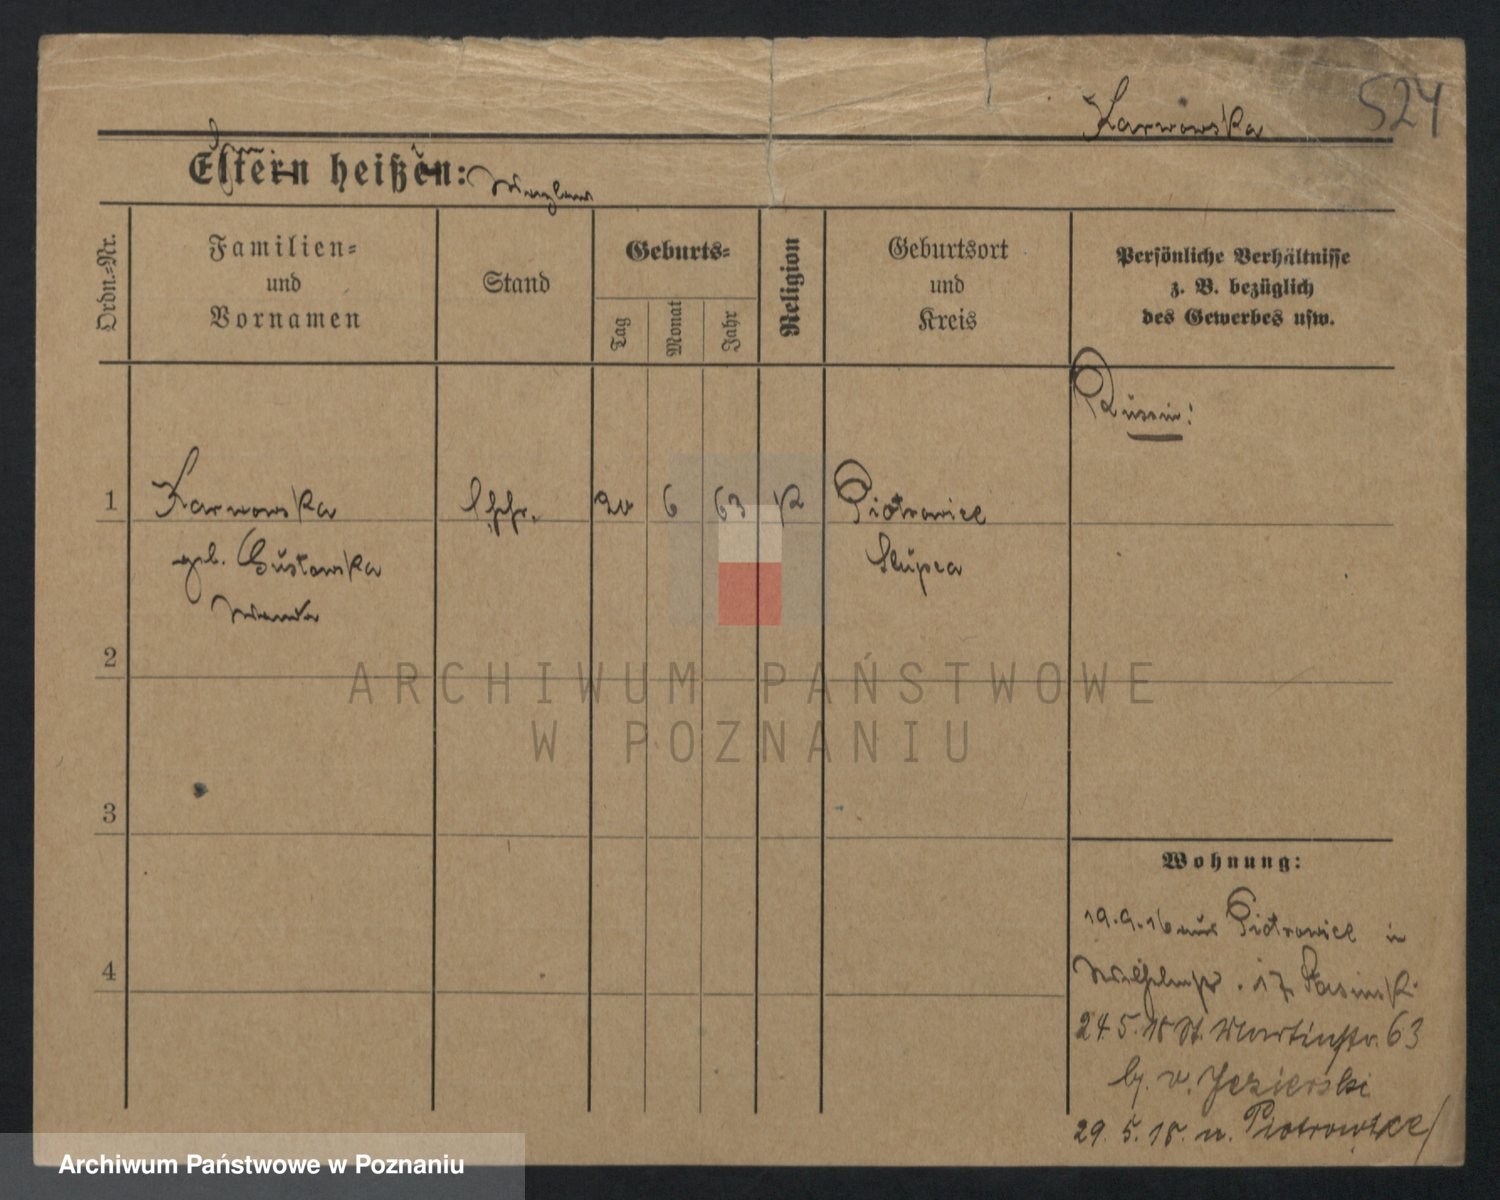 524
Karwowska
Eltern heißen:
Ordn.-Nr.
Familien-
und
Vornamen
Stand
Geburts-
Tag
Monat
Jahr
Religion
Geburtsort
und
Kreis
Persönliche Verhältnisse
z. B. bezüglich
des Gewerbes usw.
Russin!
1 Karwowska 20 6 63 K Piotrowice
geb. Gustowska Slupca
2
3
4
Wohnung:
19.9.16 aus Piotrowice in
17
24.5.18 St. Martinstr. 63
b. v. Jezierski
29.5.18. n. Piotrowice
ARCHIWUM PAŃSTWOWE
W POZNANIU
Archiwum Państwowe w Poznaniu